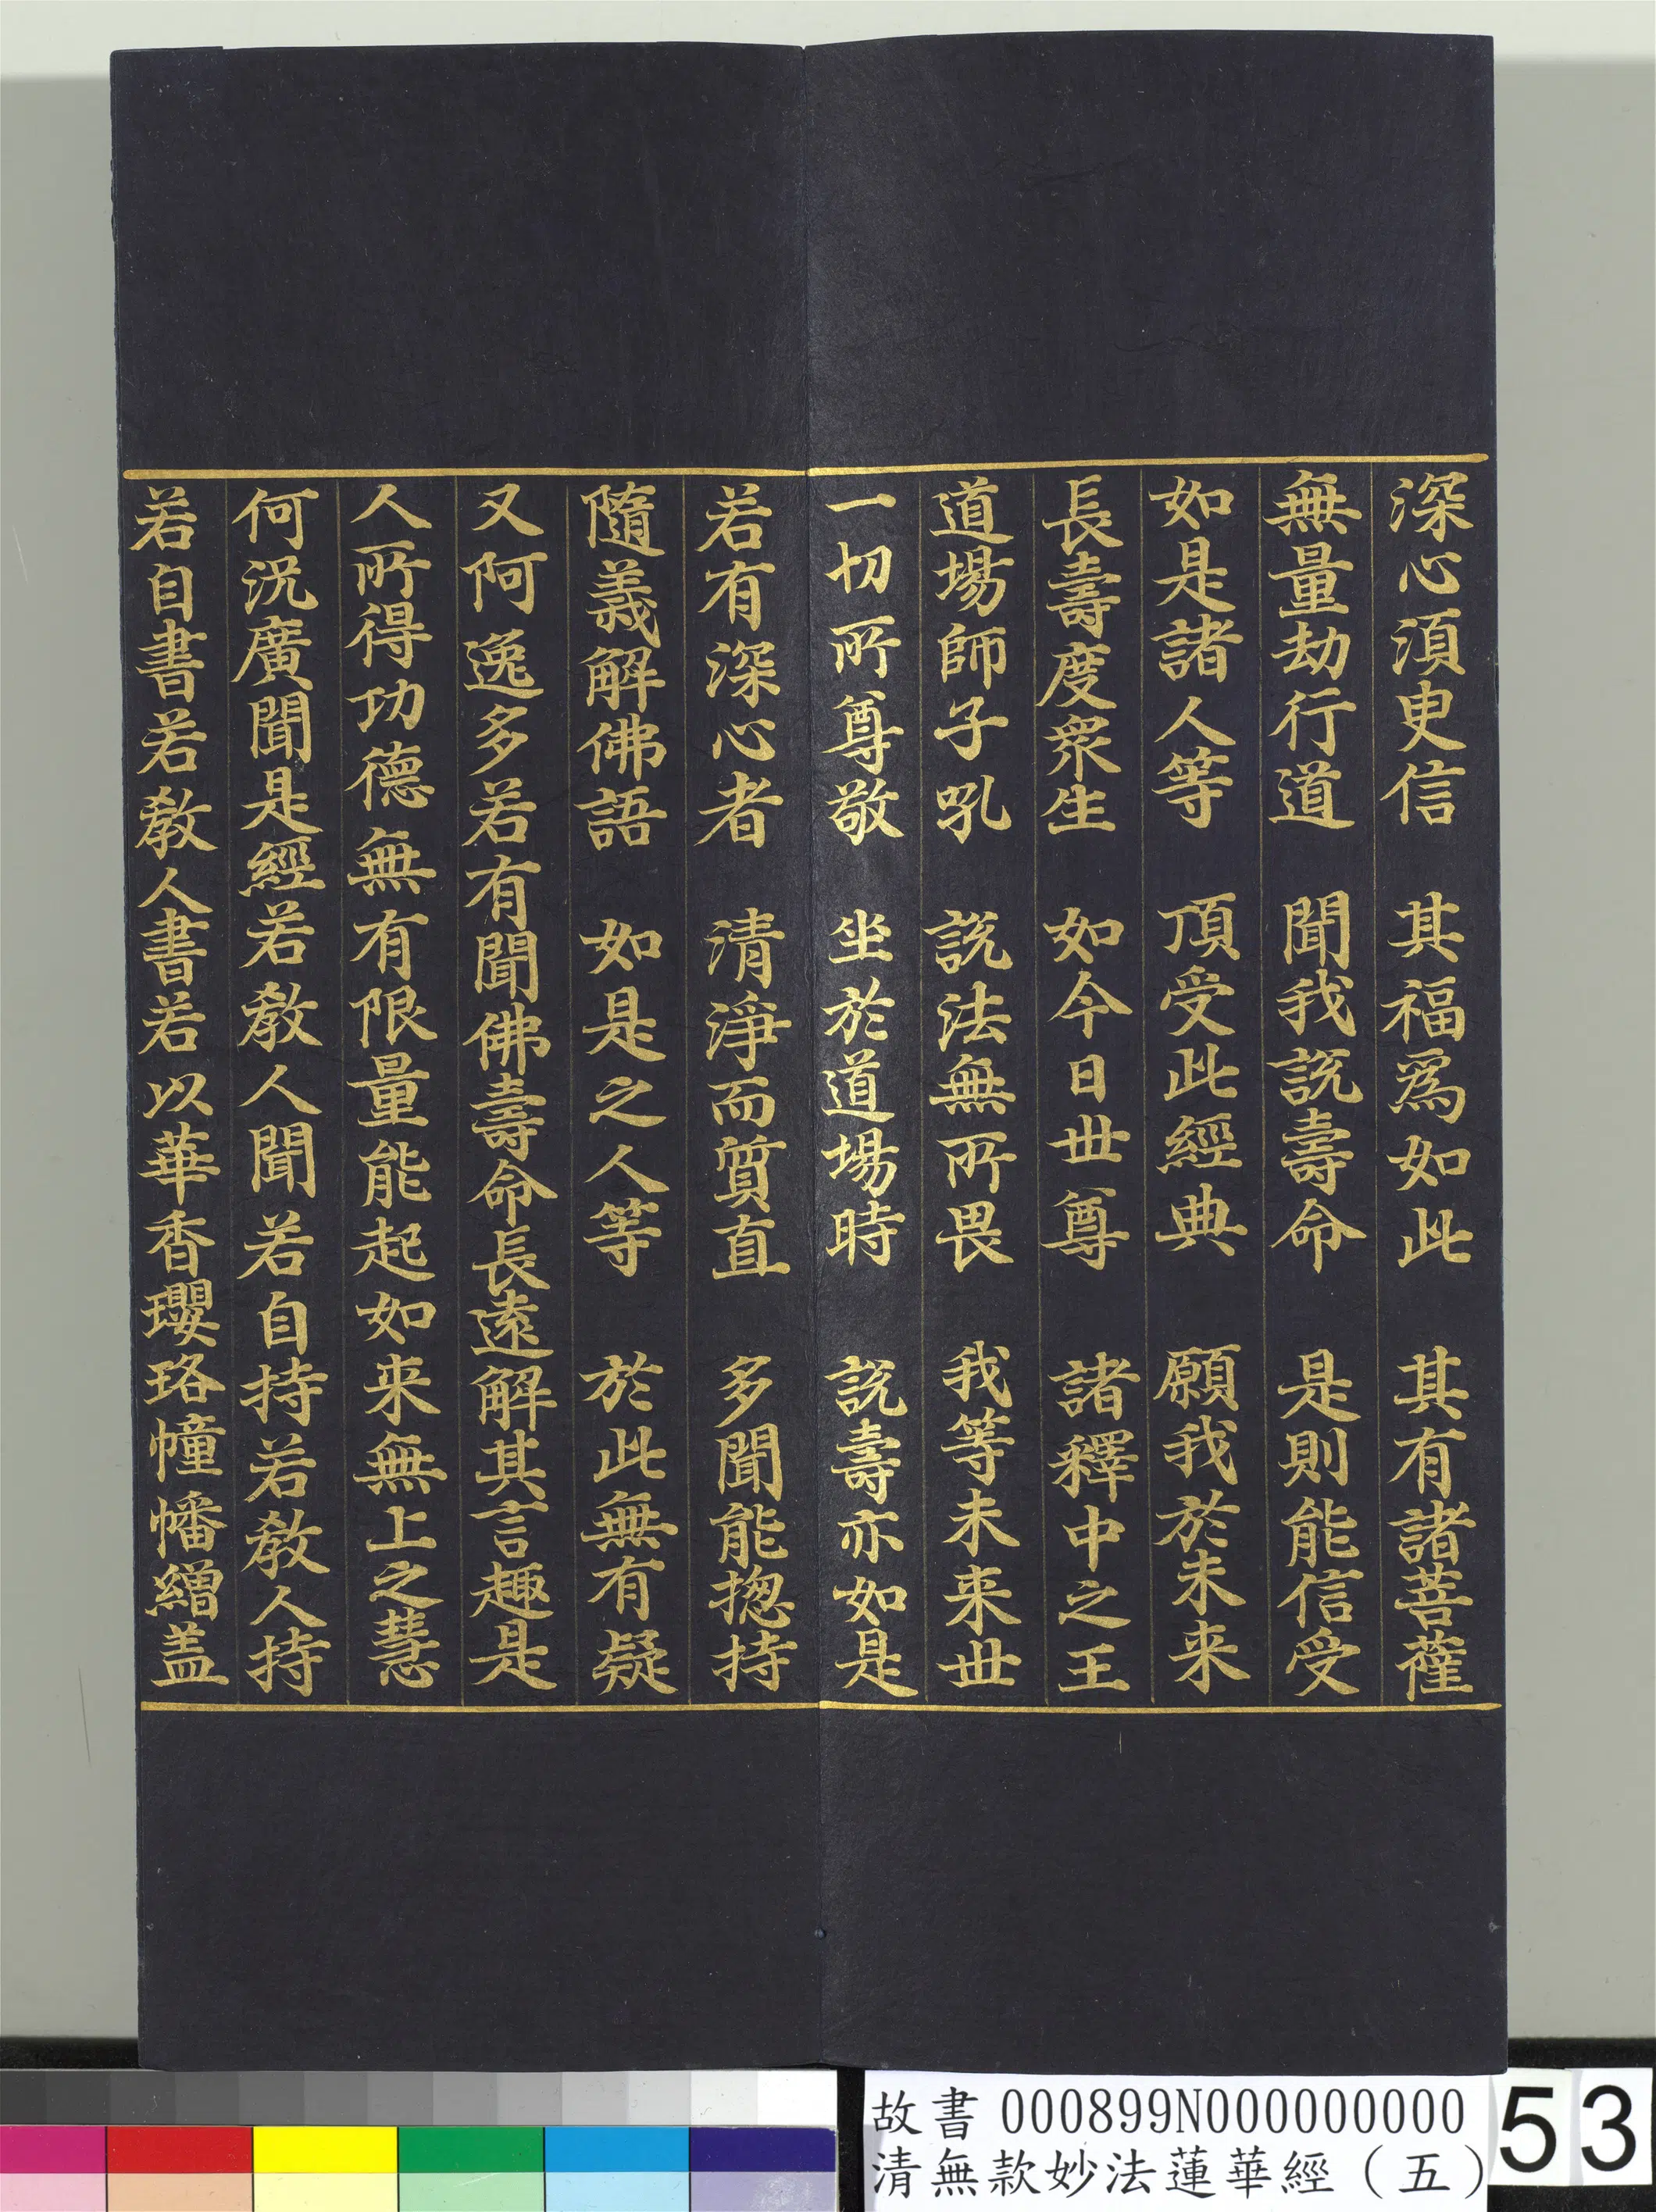 深心湏臾信　其福爲如此　其有諸菩薩
無量劫行道　聞我説壽命　是則能信受
如是諸人等　頂受此經典　願我於未来
長壽度衆生　如今日世尊　諸釋中之王
道場師子吼　説法無所畏　我等未来世
一切所尊敬　坐於道場時　説壽亦如是
若有深心者　清淨而質直　多聞能揔持
隨義解佛語　如是之人等　於此無有疑
又阿逸多若有聞佛壽命長遠解其言趣是
人所得功德無有限量能起如来無上之慧
何況廣聞是經若教人聞若自持若教人持
若自書若教人書若以華香瓔珞幢幡繒盖
故書 000899N000000000
清無款妙法蓮華經（五）
53